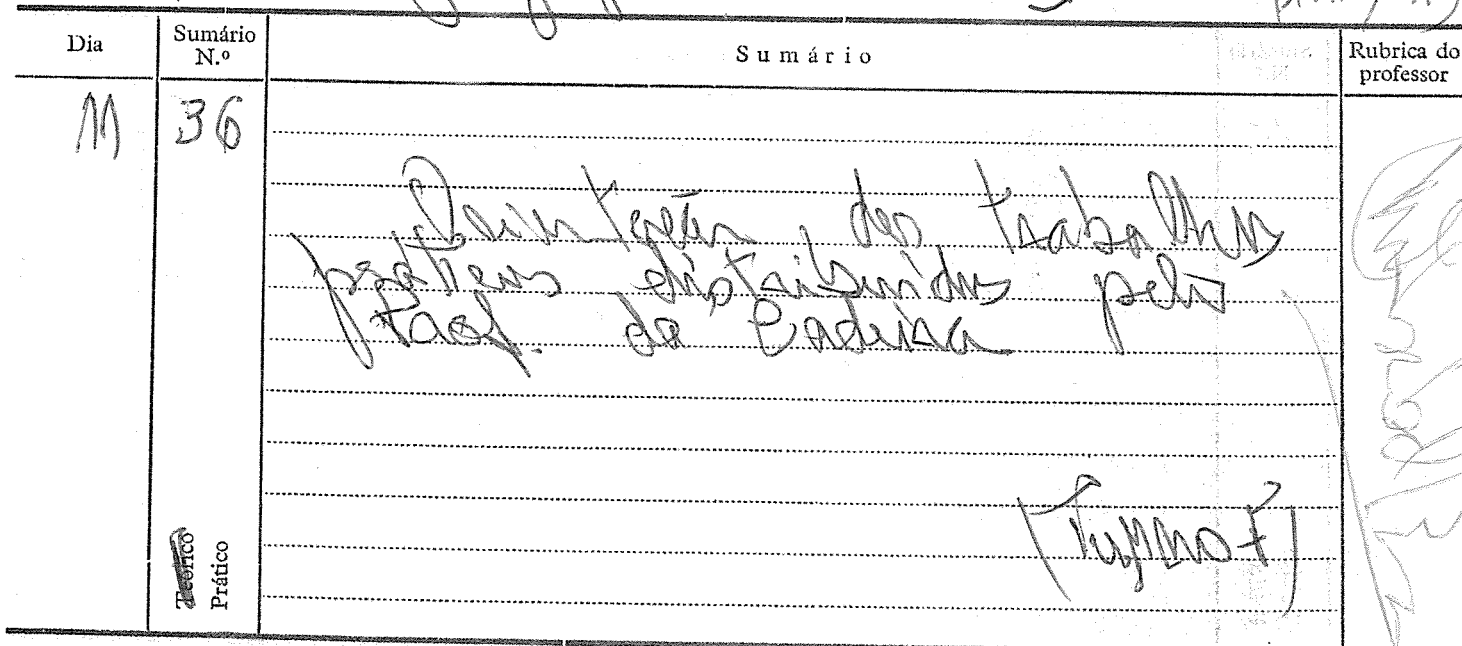 Dia
Sumário N.º
Sumário
Rubrica do professor
11
36
dos trabalhos
práticos distribuidos pelo
Prof. da Cadeira
(Turma F)
Teórico
Prático